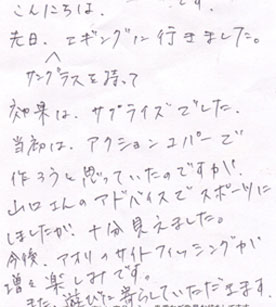 こんにちは。
です。
先日、エギングに行きました。
サングラスを持って
効果は、サプライズでした。
当初は、アクションコパーで
作ろうと思っていたのですが、
山口さんのアドバイスでスポーツに
しましたが、十分見えました。
今後、アオリのサイトフィッシングが
増々楽しみです。
また、遊びに寄らしていただきます